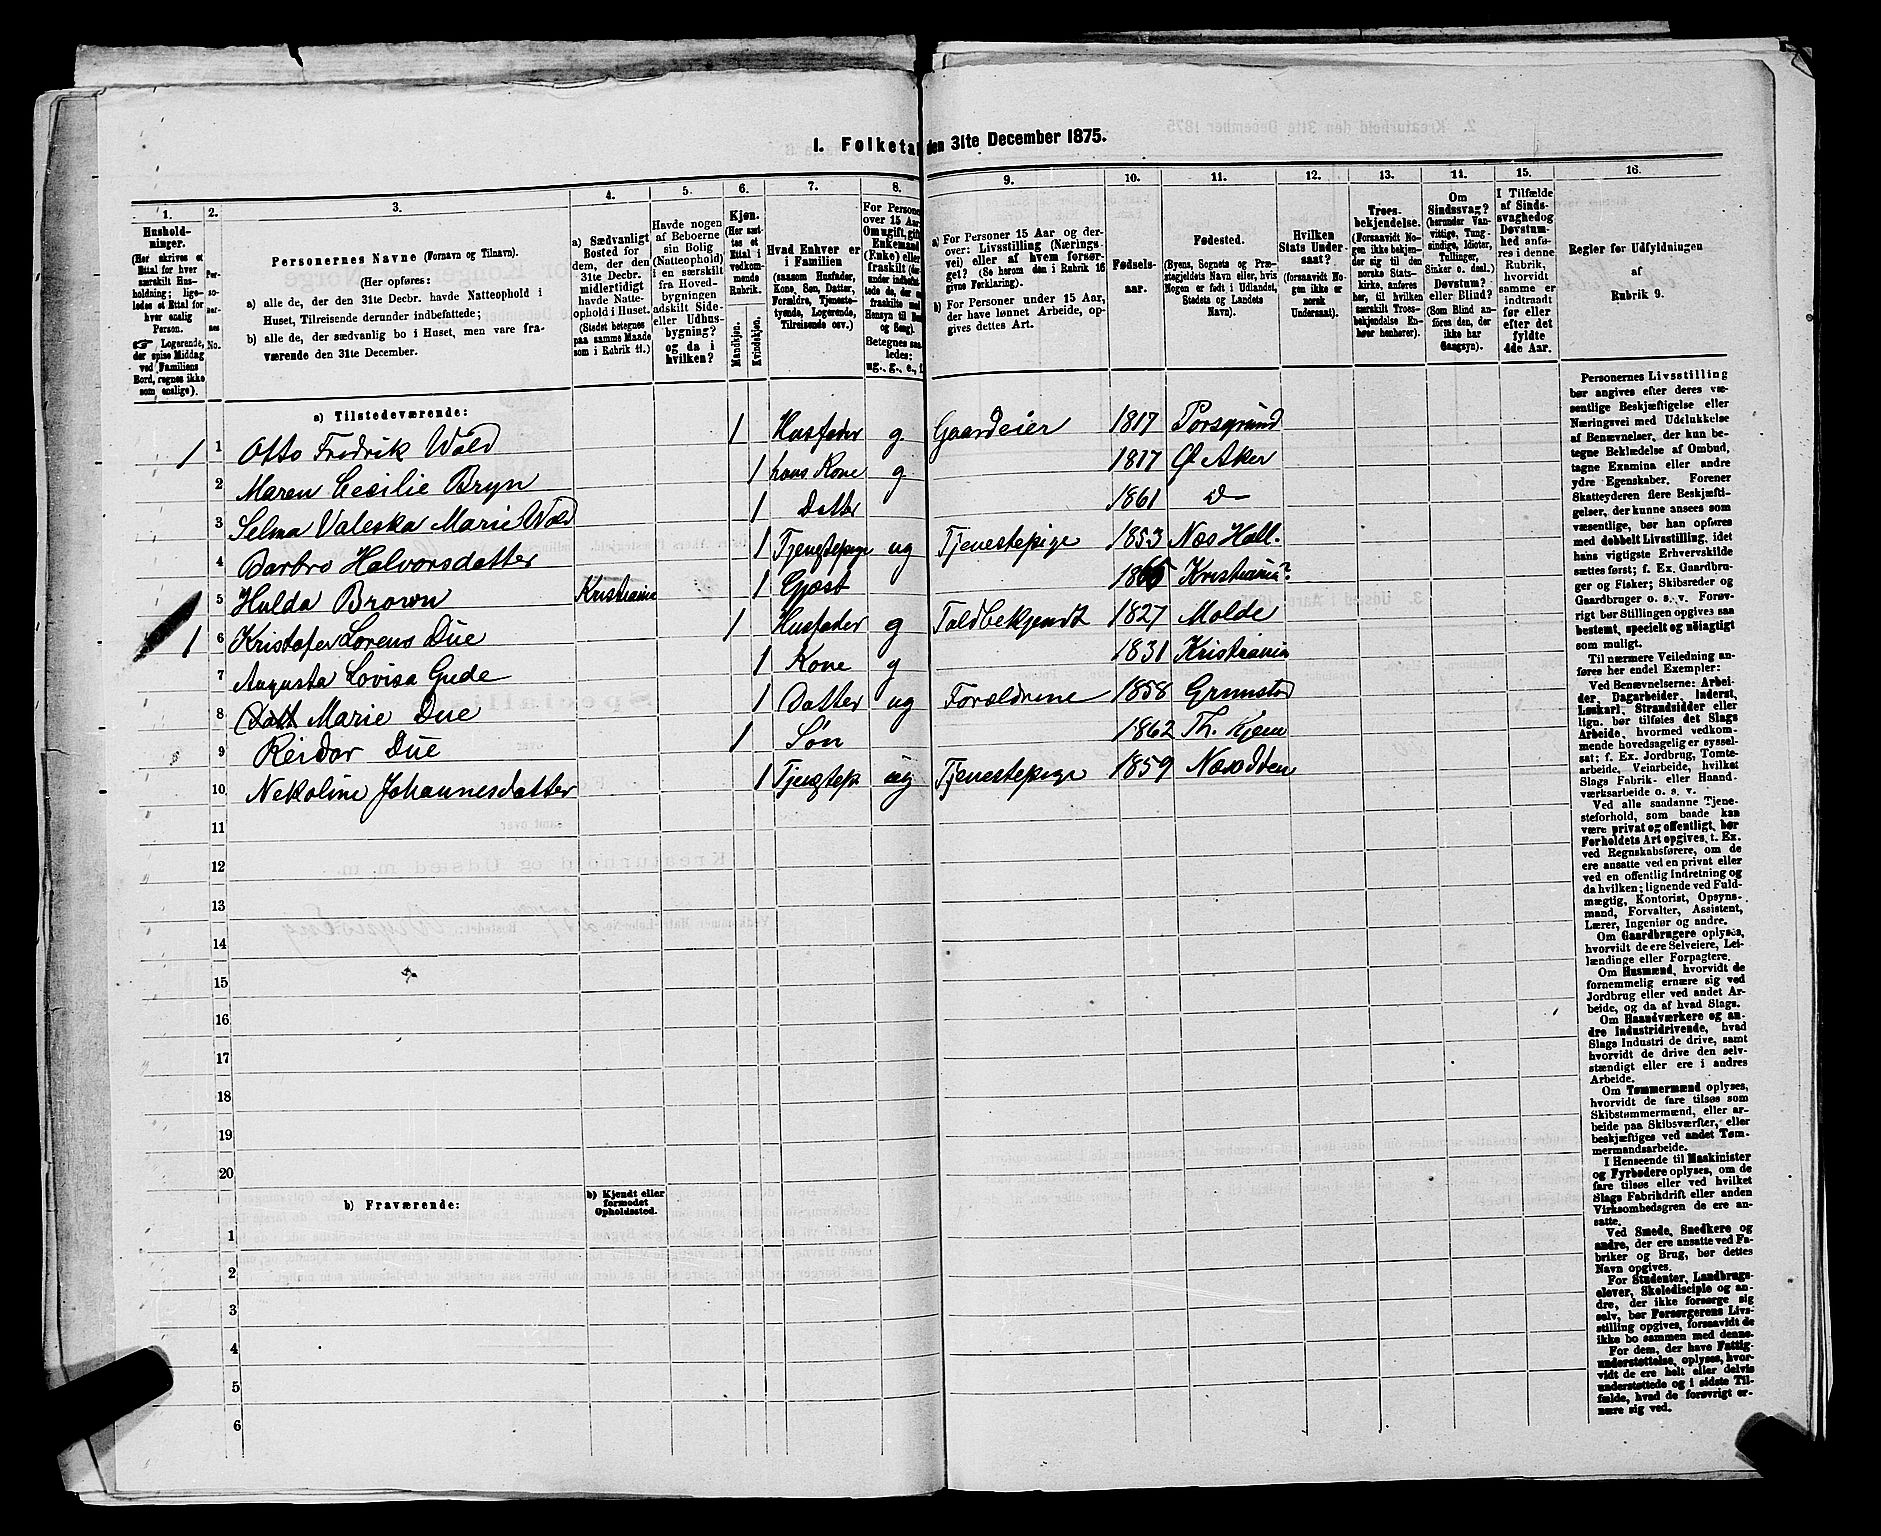 1. Folketal den 31te December 1875.
1. 2. 3. 4. 5. 6. 7. 8. 9. 10. 11. 12. 13. 14. 15. 16.
Hushold-
ninger.
(Her skrives et
Ettal for hver
særskilt Hus-
holdning; lige-
ledes et Ettal for
hver enslig
Person.
☞ Logerende,
der spise Middag
ved Familiens
Bord, regnes ikke
som enslige).
Per-
so-
ner-
nes
No.
Personernes Navne (Fornavn og Tilnavn).
(Her opføres:
a) alle de, der den 31te Decbr. havde Natteophold i
Huset, Tilreisende derunder indbefattede;
b) alle de, der sædvanlig bo i Huset, men vare fra-
værende den 31te December.
a) Sædvanligt
Bosted for
dem, der den
31te Decbr.
midlertidigt
havde Natte-
ophold i Huset.
(Stedet betegnes
paa samme Maade
som i Rubrik 11.)
Havde nogen
af Beboerne
sin Bolig
(Natteophold)
i en særskilt
fra Hoved-
bygningen
adskilt Side-
eller Udhus-
bygning?
og da i
hvilken?
Kjøn.
(Her sæt-
tes et
Ettal i
vedkom-
mende
Rubrik.
Mandkjøn.
Kvindekjøn.
Hvad Enhver er
i Familien
(saasom Husfader,
Kone, Søn, Datter,
Forældre, Tjeneste-
tyende, Logerende,
Tilreisende osv.)
For Persone
over 15 Aar
Om ugift, gift
Enkemand
(Enke) eller
fraskilt
Betegnes saa-
ledes:
ug., g., e., f.
a) For Personer 15 Aar og der-
over: Livsstilling (Nærings-
vei) eller af hvem forsør-
get? (Se herom den i Rubrik 16
givne Forklaring.)
b) For Personer under 15 Aar,
der have lønnet Arbeide, op-
gives dettes Art.
Fødsels-
aar.
Fødested.
(Byens, Sognets og Præ-
stegjeldets Navn eller, hvis
Nogen er født i Udlandet,
Stedets og Landets
Navn).
Hvilken
Stats Under-
saat?
(forsaavidt No-
gen ikke er
norsk
Undersaat).
Troes-
bekjendelse.
(Forsaavidt No-
gen ikke bekjen-
der sig til den
norske Stats-
kirke, anføres
her, til hvilken
særskilt Troes-
bekjendelse En-
hver henhører).
Om
Sindssvag?
(herunder Van-
vittige, Tung-
sindige, Idioter,
Tullinger,
Sinker o. desl.)
Døvstum?
eller Blind?
(Som Blind an-
føres den, der
ikke har
Gangsyn).
I Tilfælde
af Sinds-
svaghed og
Døvstum-
hed anfø-
res i denne
Rubrik,
hvorvidt
samme er
indtraadt
før eller
efter det
fyldte
4de Aar.
Regler for Udfyldningen
af
Rubrik 9.
a) Tilstedeværende:
1 1 Otto Fredrik Wold 1 Husfader g Gaardeier 1817 Porsgrund
2 Maren Cecilie Bryn 1 hans Kone g 1817 Ø Aker
3 Selma Valeska Marie Wold 1 Datter 1861 do
4 Barbro Halvorsdatter 1 Tjenstepige ug Tjenestepige 1853 Næs Hall.
5 Hulda Brown Kristiania 1 Gjæst 1865 Kristiania?
1 6 Kristofer Lorens Due 1 Husfader g Toldbetjendt 1827 Molde
7 Augusta Lovisa Gude 1 Kone g 1831 Kristiania
8 Marie Due 1 Datter ug Forældrene 1858 Grimstad
9 Reidar Due 1 Søn 1862 Th. Kjem
10 Nekoline Johannesdatter 1 Tjenstep. ug Tjenestepige 1859 Næsodden
11
12
13
14
15
16
17
18
19
20
b) Fraværende:
b) Kjendt eller
formodet
Opholdssted.
1
2
3
4
5
6
Personernes Livsstilling
bør angives efter deres væ-
sentlige Beskjæftigelse eller
Næringsvei med Udelukkelse
af Benævnelser, der kun be-
tegne Beklædelse af Ombud,
tagne Examina eller andre
ydre Egenskaber. Forener
Skatteyderen flere Beskjæfti-
gelser, der kunne ansees som
væsentlige, bør han opføres
med dobbelt Livsstilling, idet
hans vigtigste Erhvervskilde
sættes først; f. Ex. Gaardbru-
ger og Fisker; Skibsreder og
Gaardbruger o. s. v. Forøv-
rigt bør Stillingen opgives saa
bestemt, specielt og nøiagtigt
som muligt.
Til nærmere Veiledning an-
føres her endel Exempler:
Ved Benævnelserne: Arbei-
der, Dagarbeider, Inderst,
Løskarl, Strandsidder eller
lign. bør tilføies det Slags
Arbeide, hvormed vedkom-
mende hovedsagelig er syssel-
sat; f. Ex. Jordbrug, Tomte-
arbeide, Veiarbeide, hvilket
Slags Fabrik- eller Haand-
værksarbeide o. s. v.
Ved alle saadanne Tjene-
steforhold, som baade kan
være privat og offentligt, bør
Forholdets Art opgives, t. Ex.
ved Regnskabsførere, om de
ere ansatte ved en privat eller
ved en offentlig Indretning og
da hvilken; lignende ved Fuld-
mægtig, Kontorist, Opsyns-
mand, Forvalter, Assistent,
Lærer, Ingeniør og andre.
Om Gaardbrugere oplyses,
hvorvidt de ere Selveiere, Lei-
lændinge eller Forpagtere.
Om Husmænd, hvorvidt de
fornemmelig ernære sig ved
Jordbrug eller ved andet Ar-
beide, og da af hvad Slags.
Om Haandværkere og an-
dre Industridrivende, hvad
Slags Industri de drive, samt
hvorvidt de drive den selv-
stændigt eller ere i andres
Arbeide.
Om Tømmermænd oplyses,
hvorvidt de fare tilsøs som
Skibstømmermænd, eller ar-
beide paa Skibsværfter, eller
beskjæftiges ved andet Tøm-
mermandsarbeide.
I Henseende til Maskinister
og Fyrbødere oplyses, om de
fare tilsøs eller ved hvilket
Slags Fabrikdrift eller anden
Virksomhedsgren de ere an-
satte.
Ved Smede, Snedkere og
andre, der ere ansatte ved Fa-
briker og Brug, bør dettes
Navn opgives.
For Studenter, Landbrugs-
elever, Skoledisciple og an-
dre, der ikke forsørge sig
selv, bør Forsørgerens Livs-
stilling opgives, forsaavidt de
ikke bo sammen med denne.
For dem, der have Fattig-
understøttelse, oplyses, hvor-
vidt de ere helt eller delvis
understøttede og i sidste Til-
fælde, hvad de forøvrigt er-
nære sig ved.